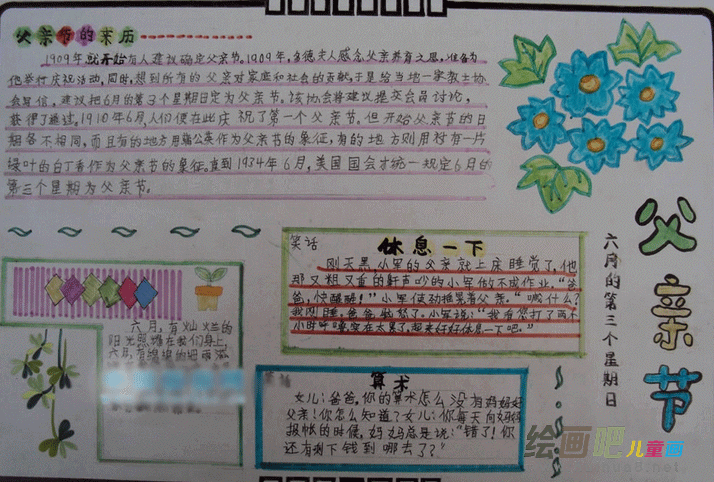 父亲节的来历
1909年就开始有人建议确定父亲节。1909年，多德夫人感念父亲养育之恩，准备为
他举行庆祝活动，同时，想到所有的父亲对家庭和社会的贡献，于是给当地一家教士协
会写信，建议把6月的第3个星期日定为父亲节。该协会将建议提交会员讨论，
获得了通过。1910年6月，人们便在此庆祝了第一个父亲节。但开始父亲节的日
期各不相同，而且有的地方用蒲公英作为父亲节的象征，有的地方则用衬有一片
绿叶的白丁香作为父亲节的象征。直到1934年6月，美国国会才统一规定6月的
第三个星期为父亲节。
父亲节
六月的第三个星期日
笑话
休息一下
刚天黑，小军的父亲就上床睡觉了。他
那又粗又重的鼾声吵的小军做不成作业。"爸
爸，快醒醒！"小军使劲推晃着父亲。"喊什么？
小时呼
六月，有灿烂的
阳光照耀在我们身上，
六月，有绵绵的细雨滋
笑话
算术
女儿：爸爸，你的算术怎么没有妈妈好
父亲：你怎么知道？女儿：你每天向妈妈
报帐的时候，妈妈总是说："错了！你
还有剩下钱到哪去了？"
绘画吧儿童画